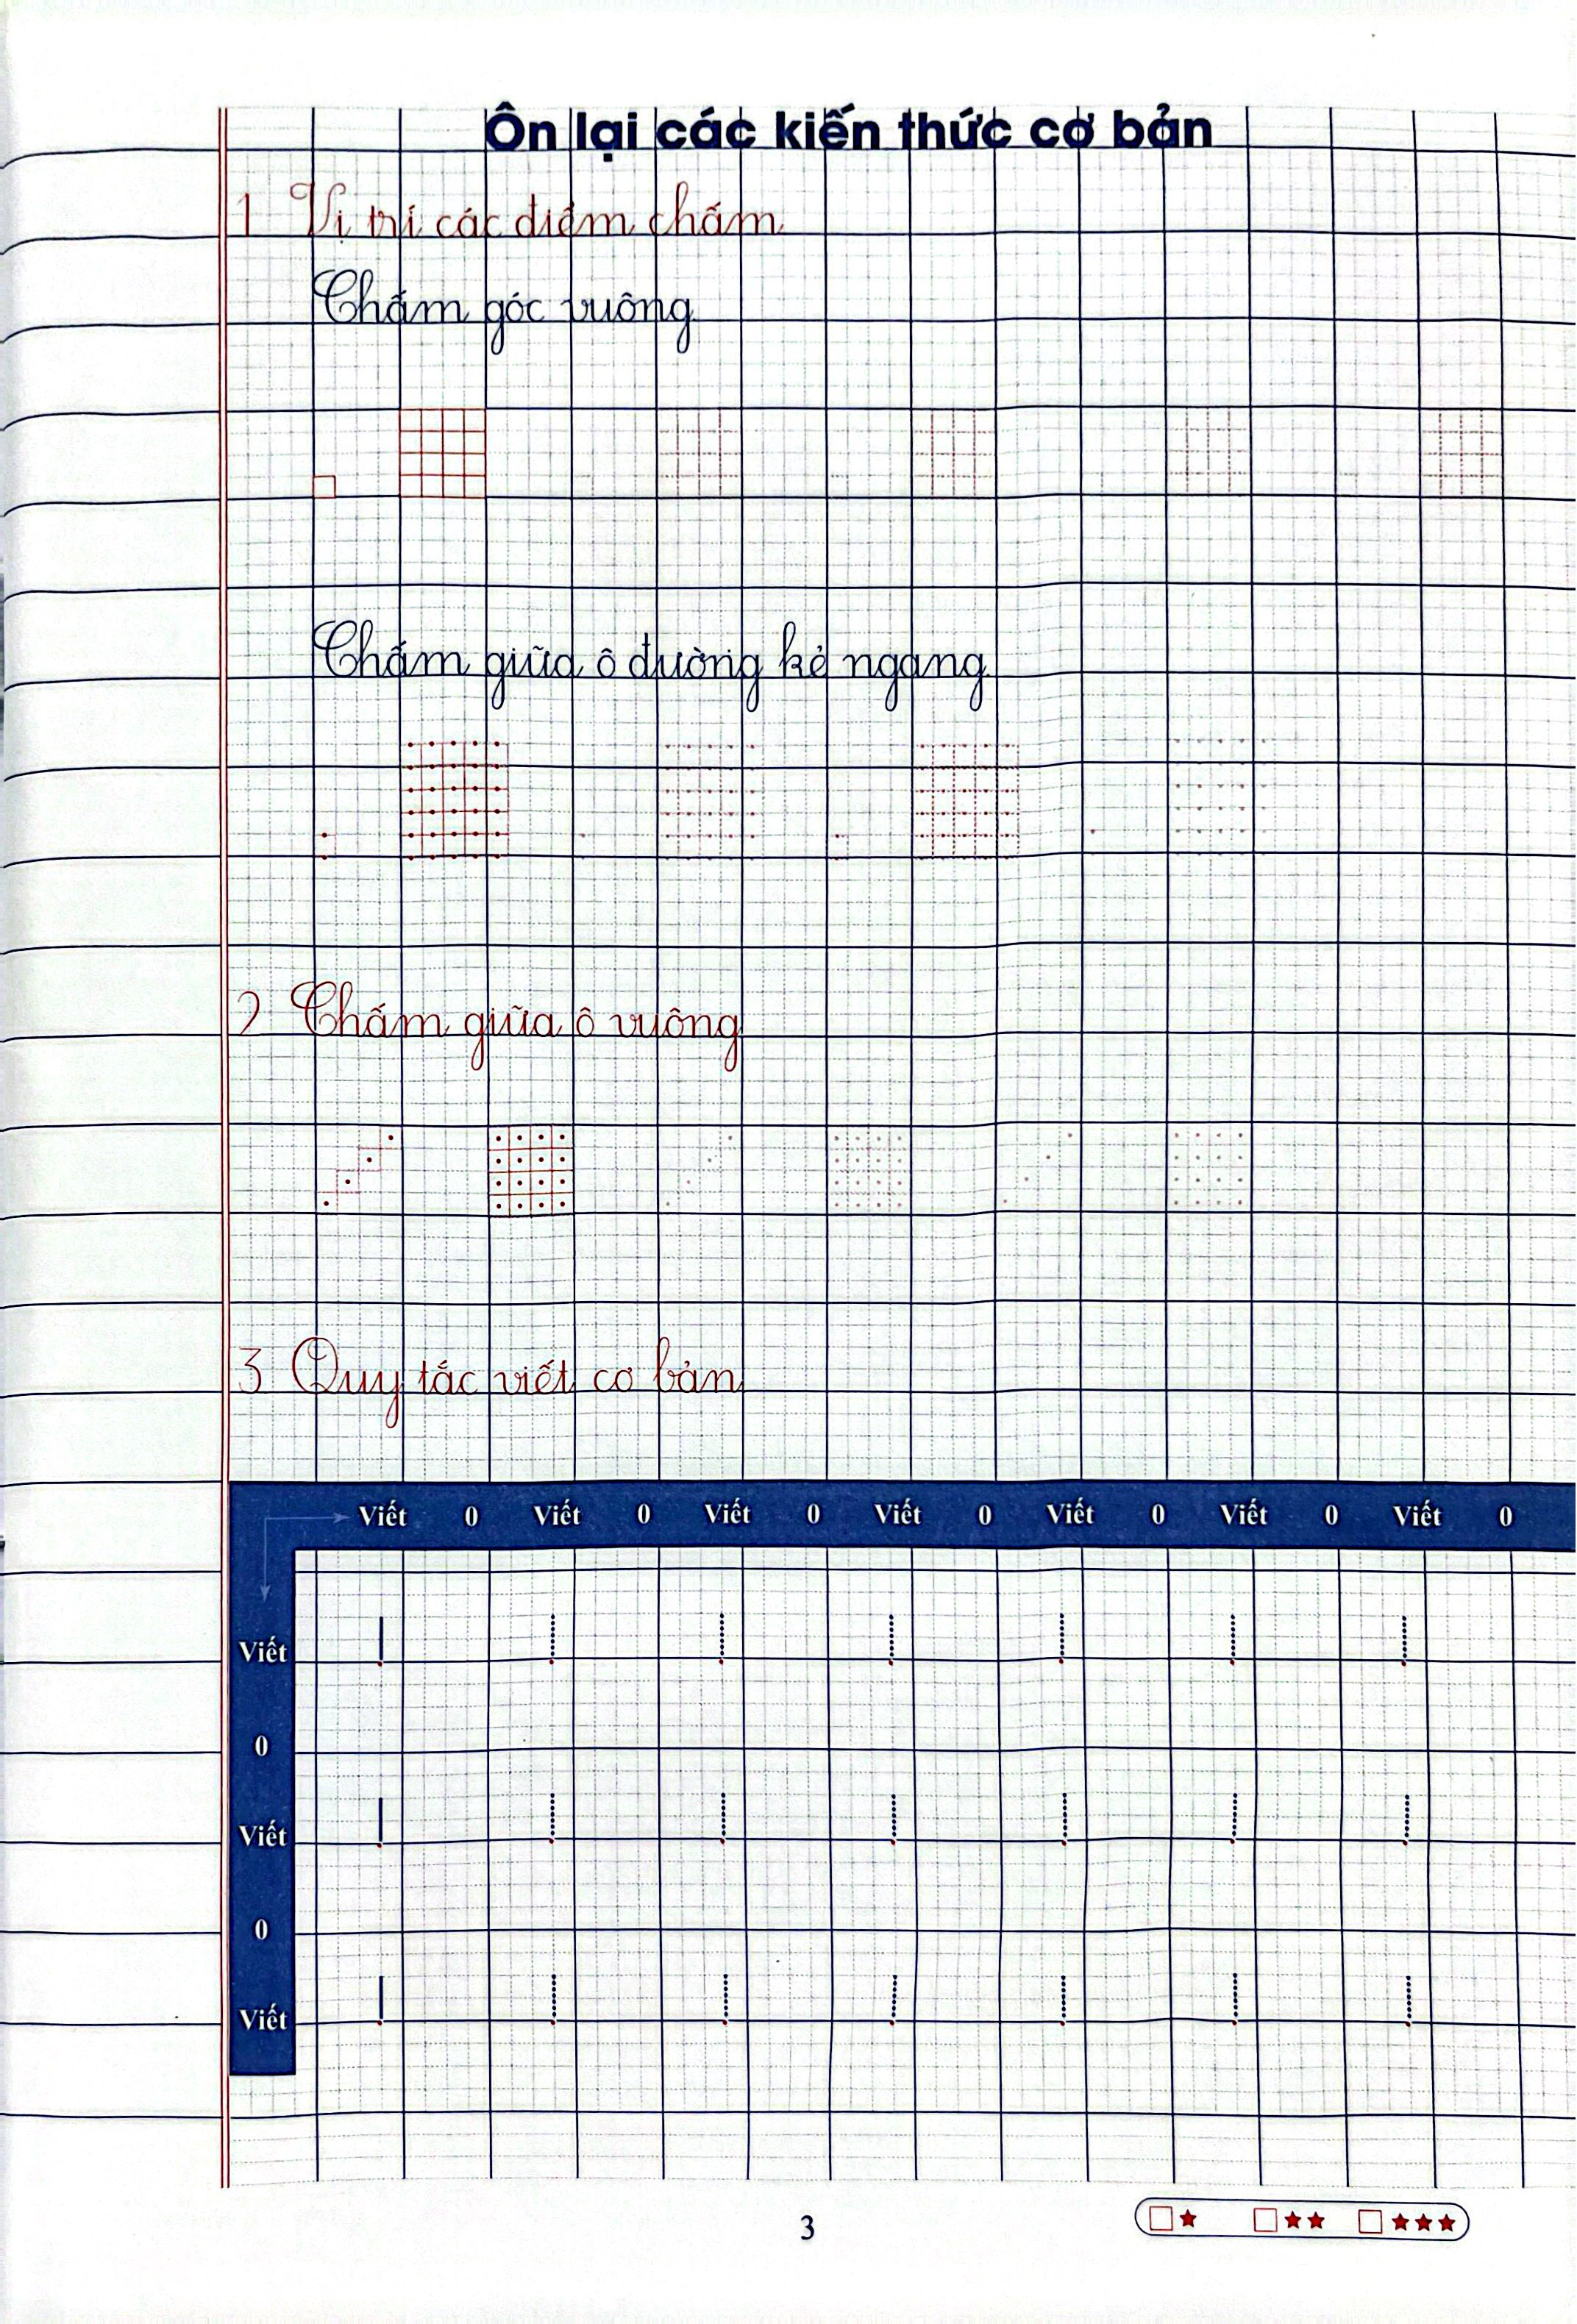 Ôn lại các kiến thức cơ bản
1 Vị trí các điểm chấm
Chấm góc vuông
Chấm giữa ô đường kẻ ngang
2 Chấm giữa ô vuông
3 Quy tắc viết cơ bản
Viết 0 Viết 0 Viết 0 Viết 0 Viết 0 Viết 0 Viết 0
Viết
0
Viết
0
Viết
3